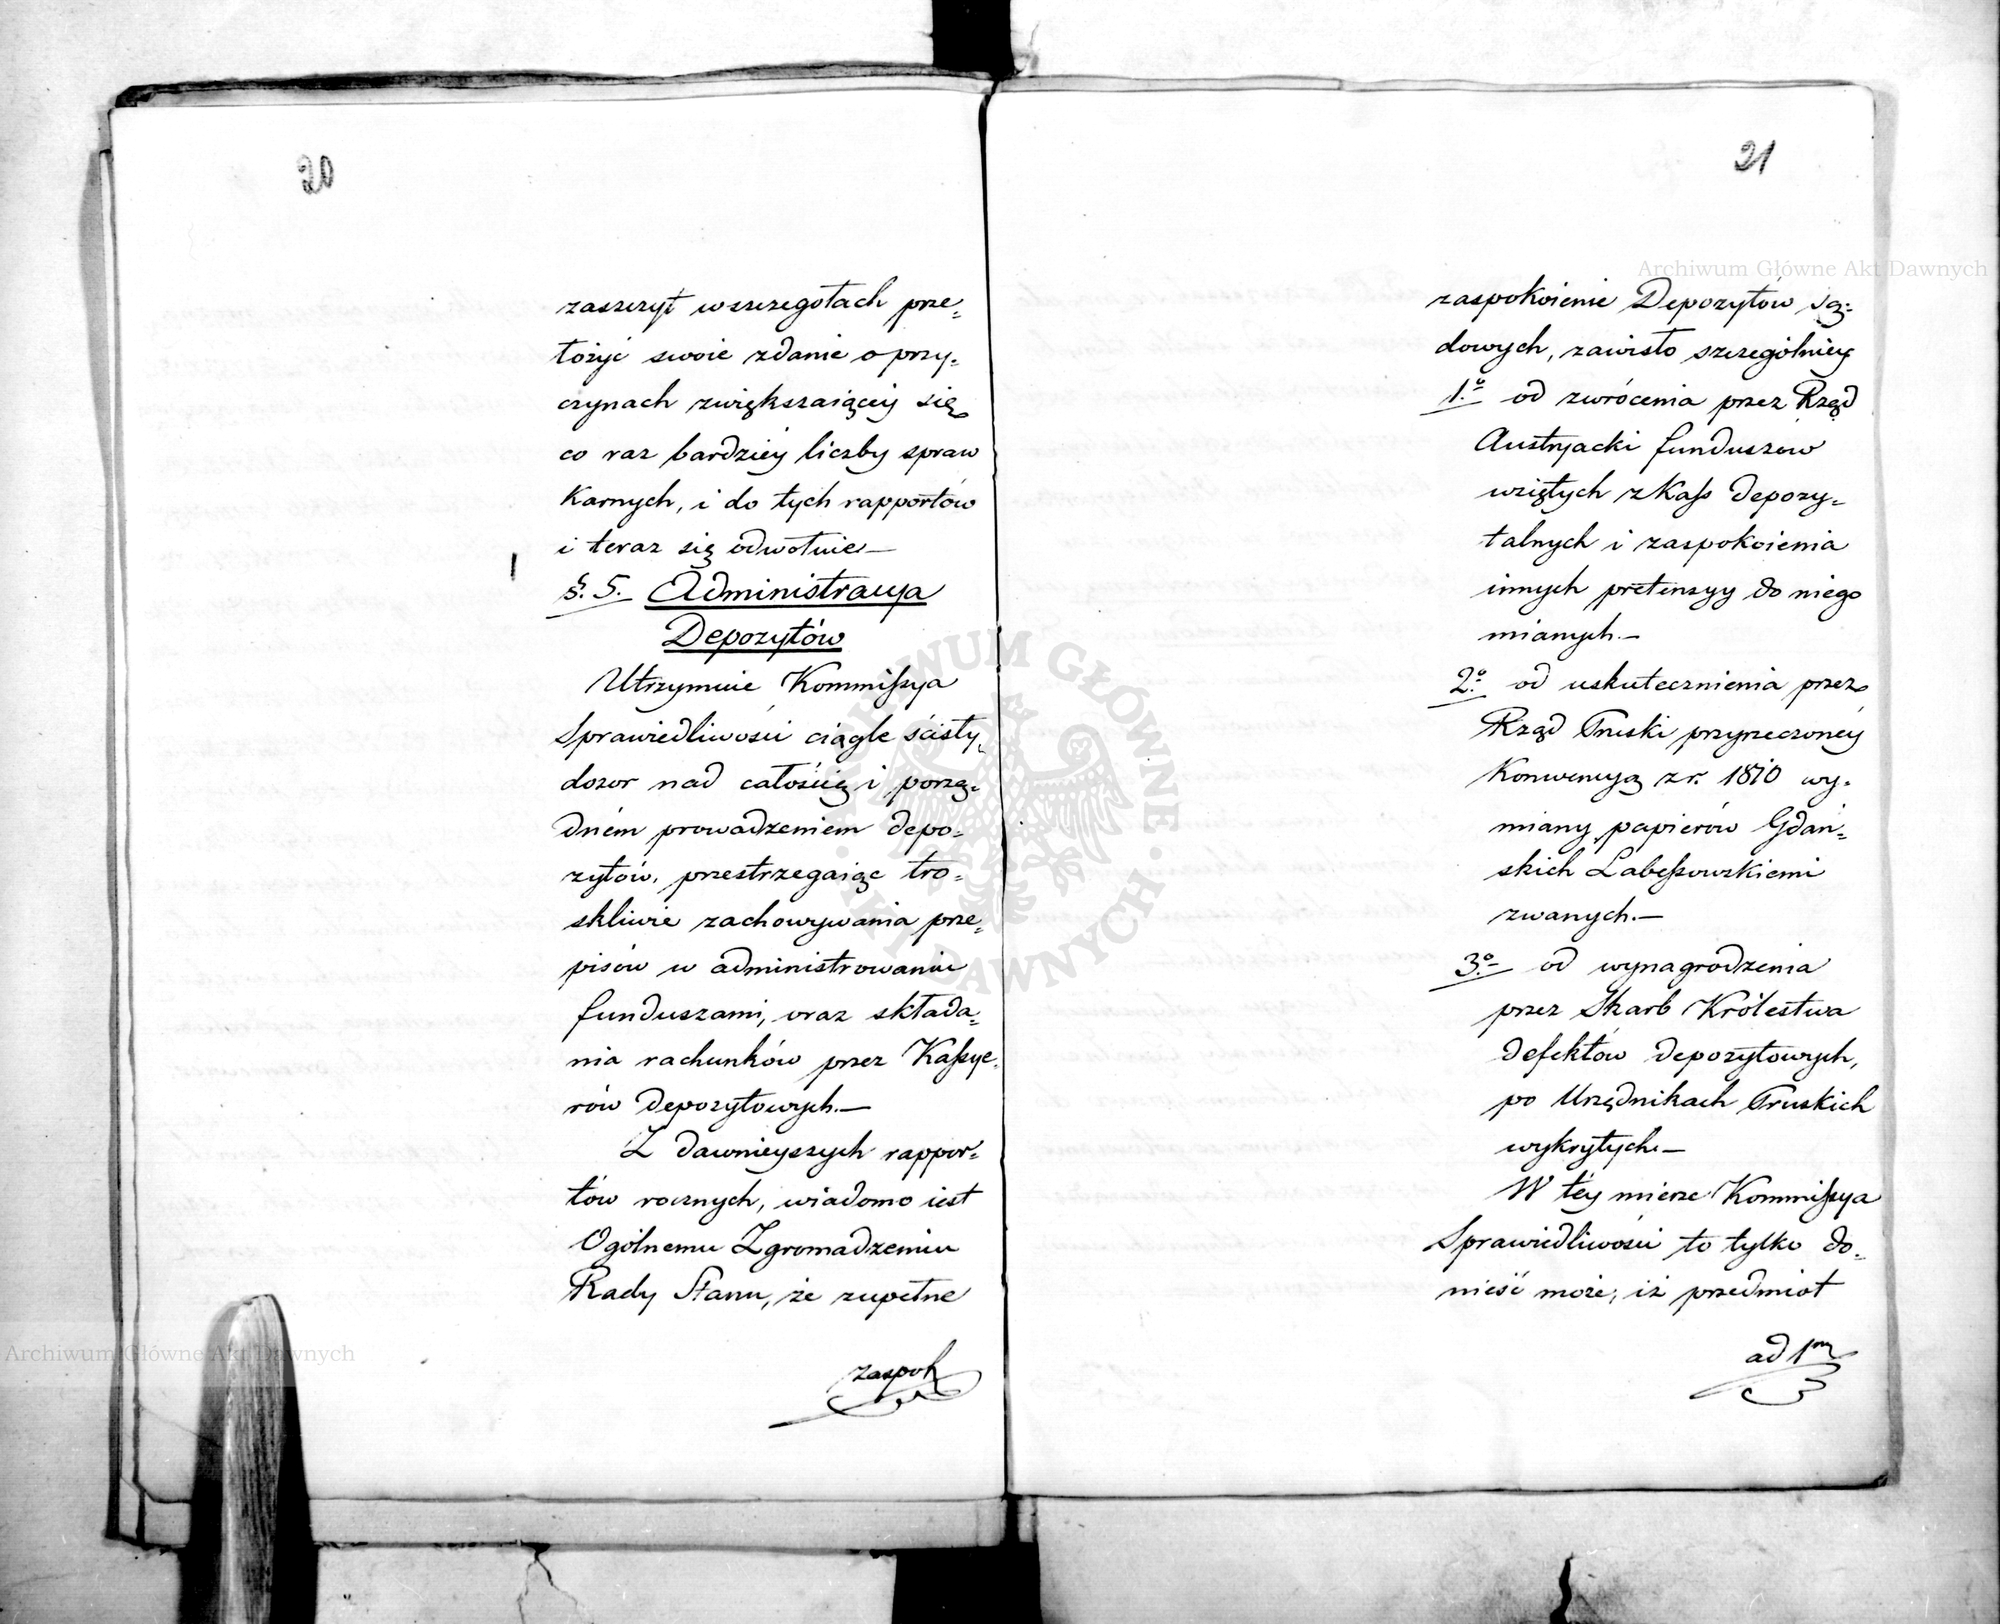 20
zaszczyt wszczegołach prze„
łożyć swoie zdanie o przy„
czynach zwiększaiącey się
co raz bardziey liczby spraw
Karnych, i do tych rapportów
i teraz się odwołuie.—
§. 5. Administracya
Depozytów
Utrzymuie Kommissya
Sprawiedliwości ciągle ścisły
dozor nad całością i porzą„
dném prowadzeniem depo„
zytów, przestrzegaiąc tro„
skliwie zachowywania prze„
pisów w administrowaniu
funduszami, oraz składa„
nia rachunków przez Kassye„
rów depozytowych.—
Z dawnieyszych rappor„
tów rocznych, wiadomo iest
Ogólnemu Zgromadzeniu
Rady Stanu, że zupełne
zaspok
21
zaspokoienie Depozytów są„
dowych, zawisło szczególniey
1.º od zwrócenia przez Rząd
Austryacki funduszów
wziętych z Kass depozy„
talnych i zaspokoienia
innych pretensyy do niego
mianych.—
2.º od uskutecznienia przez
Rząd Pruski przyrzeczoney
Konwencyą z r. 1810 wy„
miany papierów Gdań„
skich Labessowskiemi
zwanych.—
3.º od wynagrodzenia
przez Skarb Królestwa
defektów depozytowych,
po Urzędnikach Pruskich
wykrytych.—
W téy mierze Kommissya
Sprawiedliwości to tylko do„
nieść może, iż przedmiot
ad 1m
Archiwum Główne Akt Dawnych
Archiwum Główne Akt Dawnych
ARCHIWUM GŁÓWNE AKT DAWNYCH